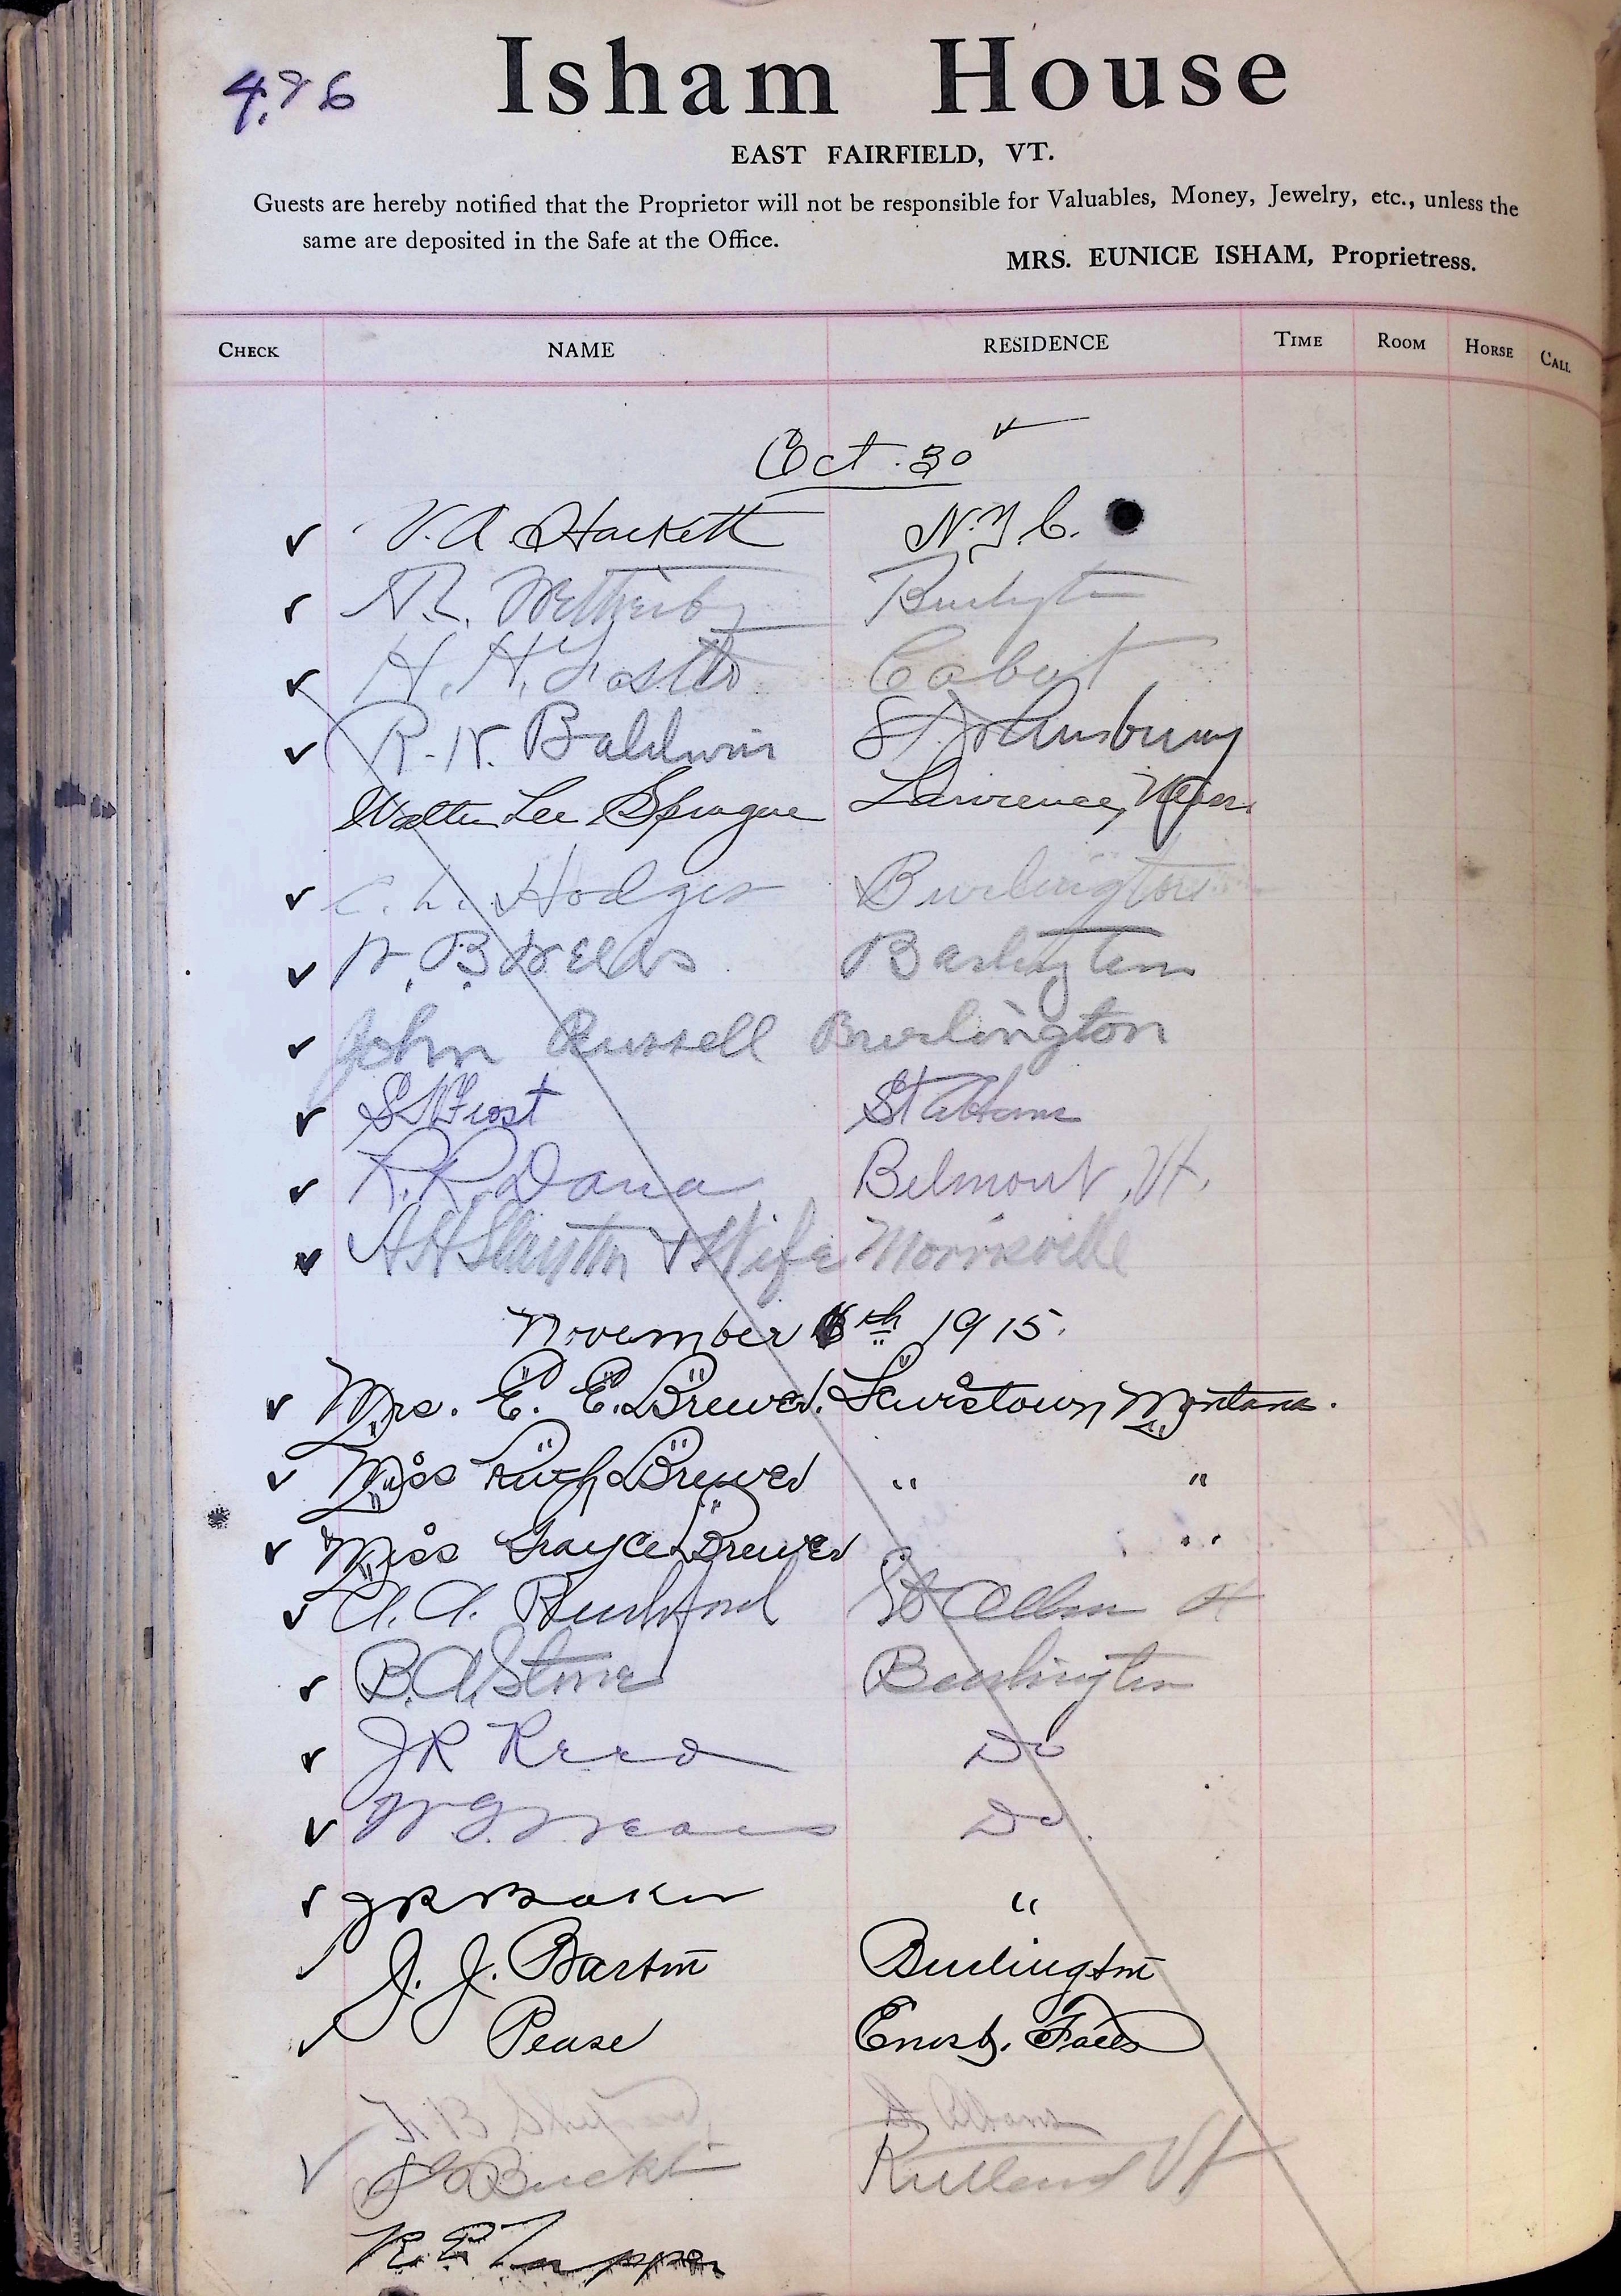 4.76
Isham House
EAST FAIRFIELD, VT.
Guests are hereby notified that the Proprietor will not be responsible for Valuables, Money, Jewelry, etc., unless the
same are deposited in the Safe at the Office.
MRS. EUNICE ISHAM, Proprietress.
CHECK NAME RESIDENCE TIME ROOM HORSE CALL
Oct. 30
V. A. Hackett N.Y.C.
Wetherby Burlington
H. H. Foster Cabot
R. W. Baldwin St. Johnsbury
Walter Lee Sprague Lawrence, Mass.
C. L. Hodges Burlington
W. B. Wells Burlington
John Russell Burlington
Frost St Albans
R. R. Dana Belmont, Vt.
A H Slayton & Wife Morrisville
November 6th 1915.
Mrs. E. E. Brewer. Lewistown, Montana.
Miss Ruth Brewer " "
Miss Grayce Brewer "
A. A. Rushford St Albans Vt
B. A. Stone Burlington
J R Reed Do
W. G. Do.
J R Baker "
J. J. Barton Burlington
Pease Enosb. Falls
St Albans
Rutland Vt
R. E. Tupper